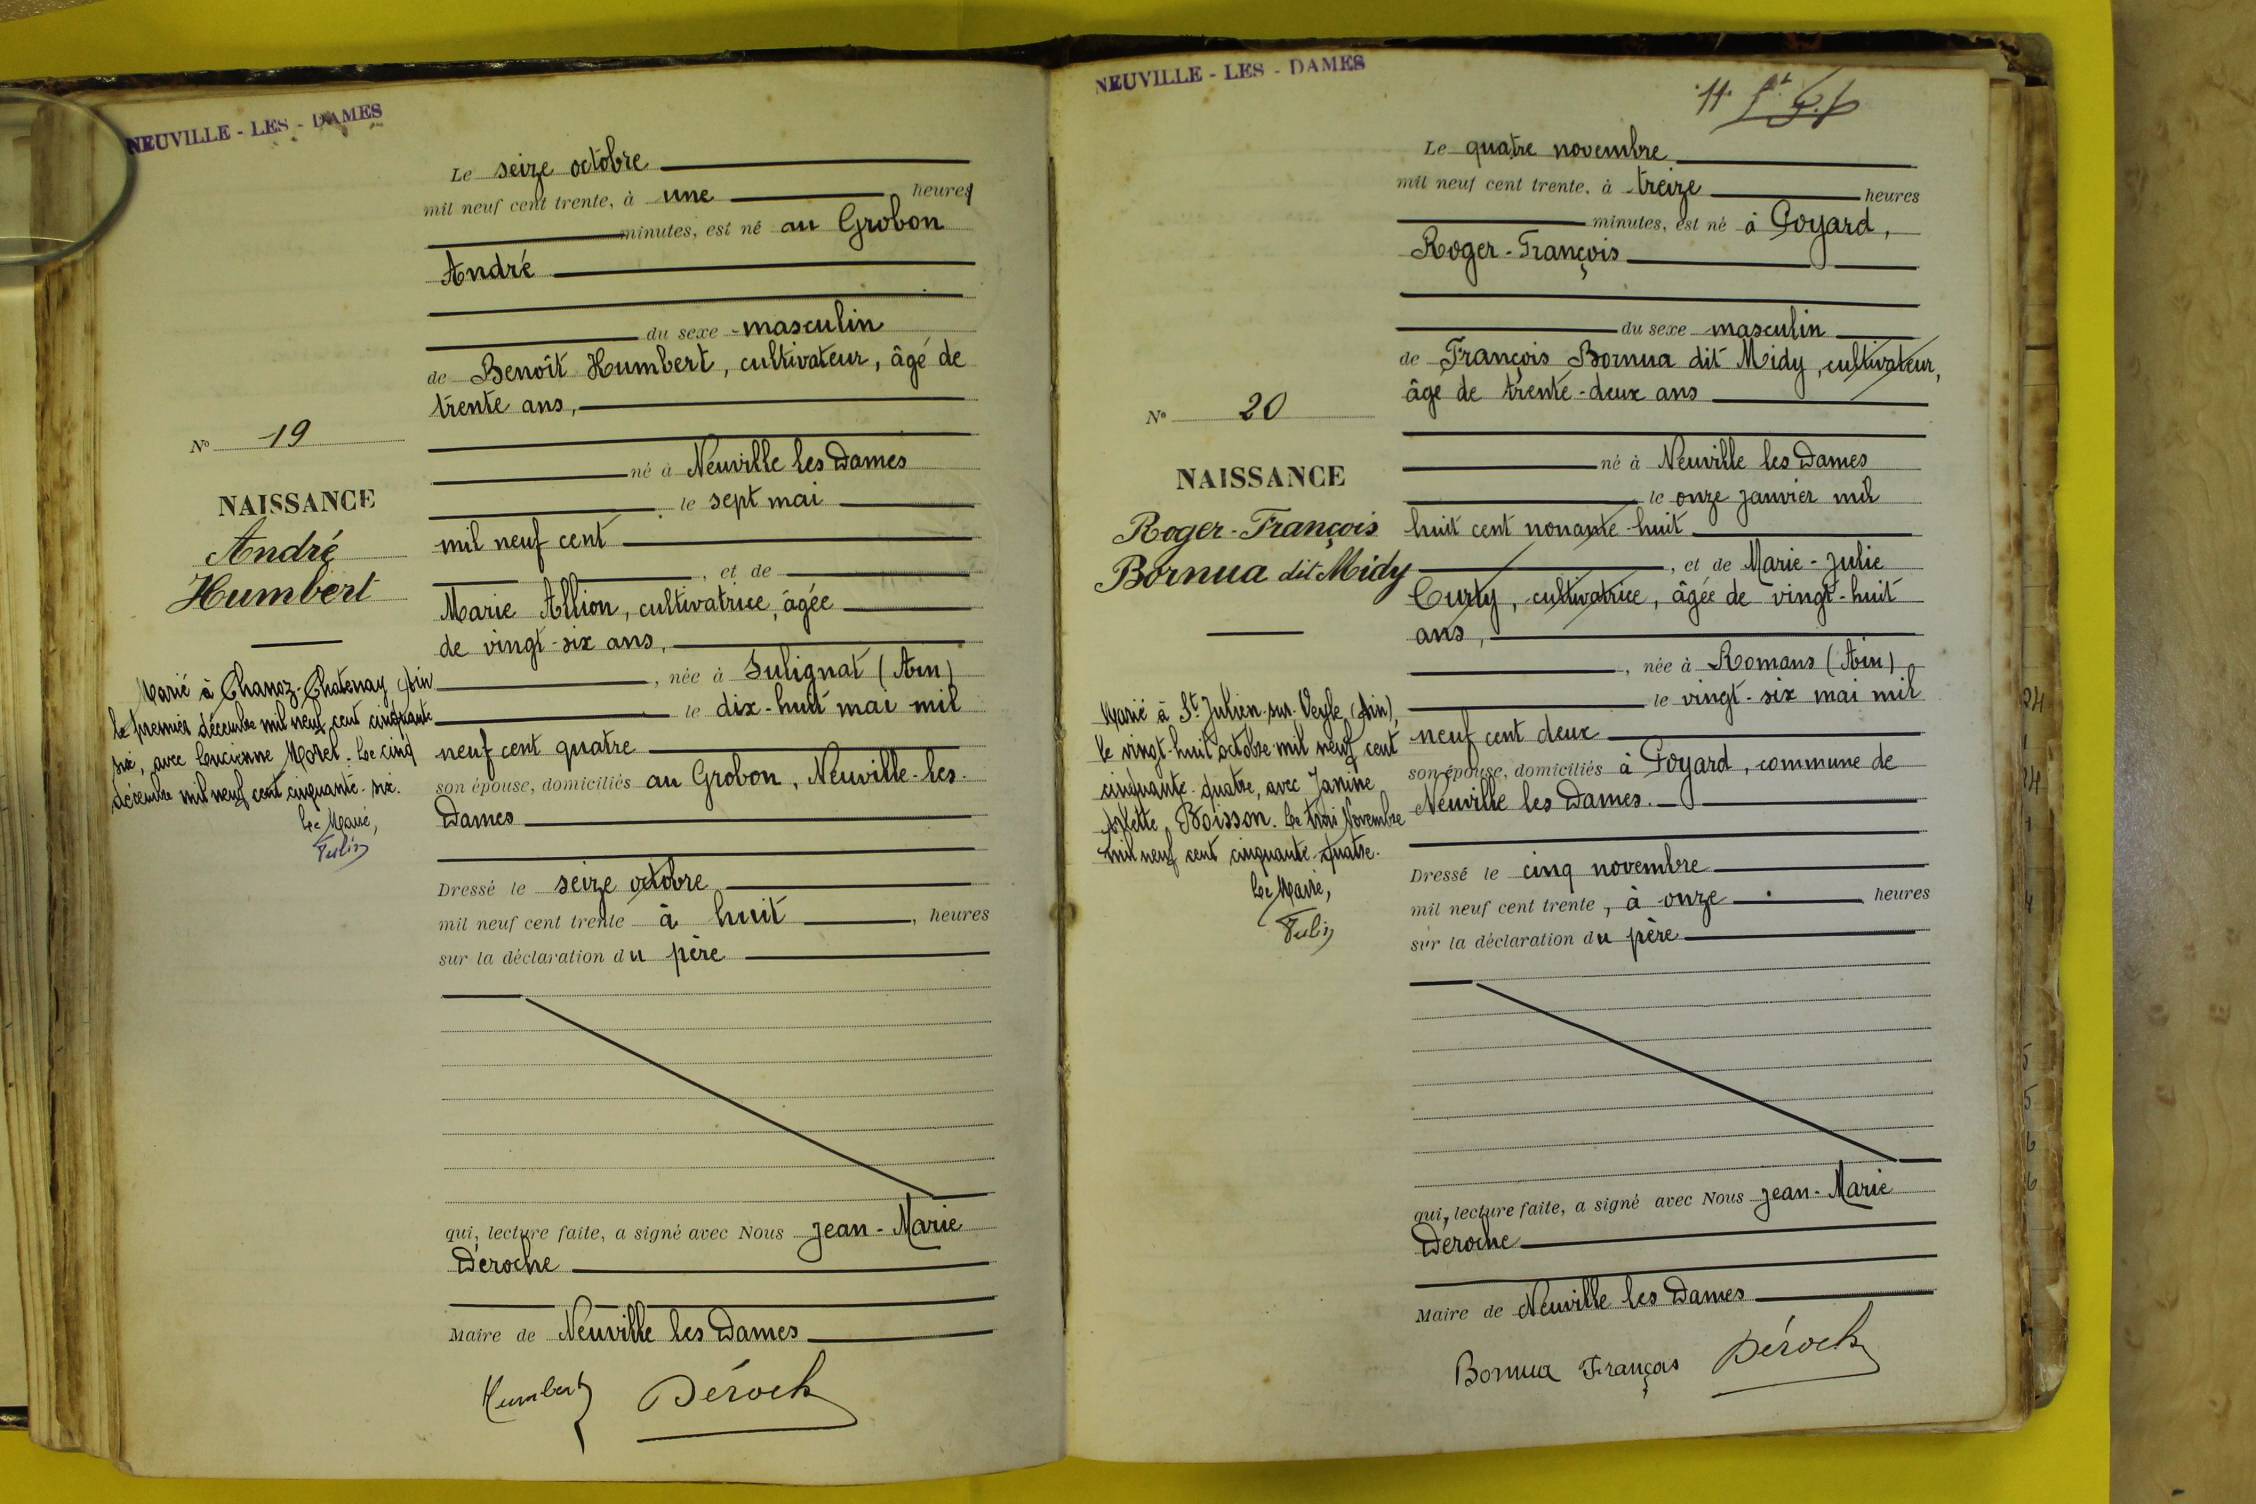 NEUVILLE - LES - DAMES
Le seize octobre
mil neuf cent trente, à une heures
minutes, est né au Grobon
André
du sexe masculin
de Benoît Humbert, cultivateur, âgé de
trente ans,
né à Neuville les Dames
le sept mai
mil neuf cent
, et de
Marie Allion, cultivatrice, âgée
de vingt-six ans,
, née à Sulignat (Ain)
le dix-huit mai mil
neuf cent quatre
son épouse, domiciliés au Grobon, Neuville-les-
Dames
Dressé le seize octobre
mil neuf cent trente à huit, heures
sur la déclaration du père
qui, lecture faite, a signé avec Nous Jean-Marie
Déroche
Maire de Neuville les Dames
Humbert Déroche
No 19
NAISSANCE
André
Humbert
Marié à Chanoz-Chatenay Ain
le premier décembre mil neuf cent cinquante
six, avec Lucienne Morel. Le cinq
décembre mil neuf cent cinquante-six.
Le Maire,
NEUVILLE - LES - DAMES
11
Le quatre novembre
mil neuf cent trente, à treize heures
minutes, est né à Poyard,
Roger-François
du sexe masculin
de François Bornua dit Midy, cultivateur,
âge de trente-deux ans
né à Neuville les Dames
le onze janvier mil
huit cent nonante-huit
, et de Marie-Julie
Curty, cultivatrice, âgée de vingt-huit
ans,
, née à Romans (Ain)
le vingt-six mai mil
neuf cent deux
son épouse, domiciliés à Poyard, commune de
Neuville les Dames.
Dressé le cinq novembre
mil neuf cent trente, à onze heures
sur la déclaration du père
qui, lecture faite, a signé avec Nous Jean-Marie
Déroche
Maire de Neuville les Dames
Bornua François Déroche
No 20
NAISSANCE
Roger-François
Bornua dit Midy
Marié à St Julien-sur-Veyle (Ain),
le vingt-huit octobre mil neuf cent
cinquante-quatre, avec Janine
Arlette Boisson. Le trois Novembre
mil neuf cent cinquante-quatre.
Le Maire,
24
1
24
1
4
5
5
6
6